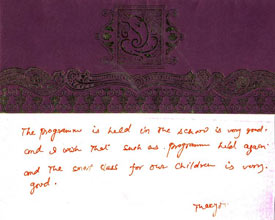 The programme is held in the school is very good.
and I wish that such as programme held again
and the smart class for our children is very
good.